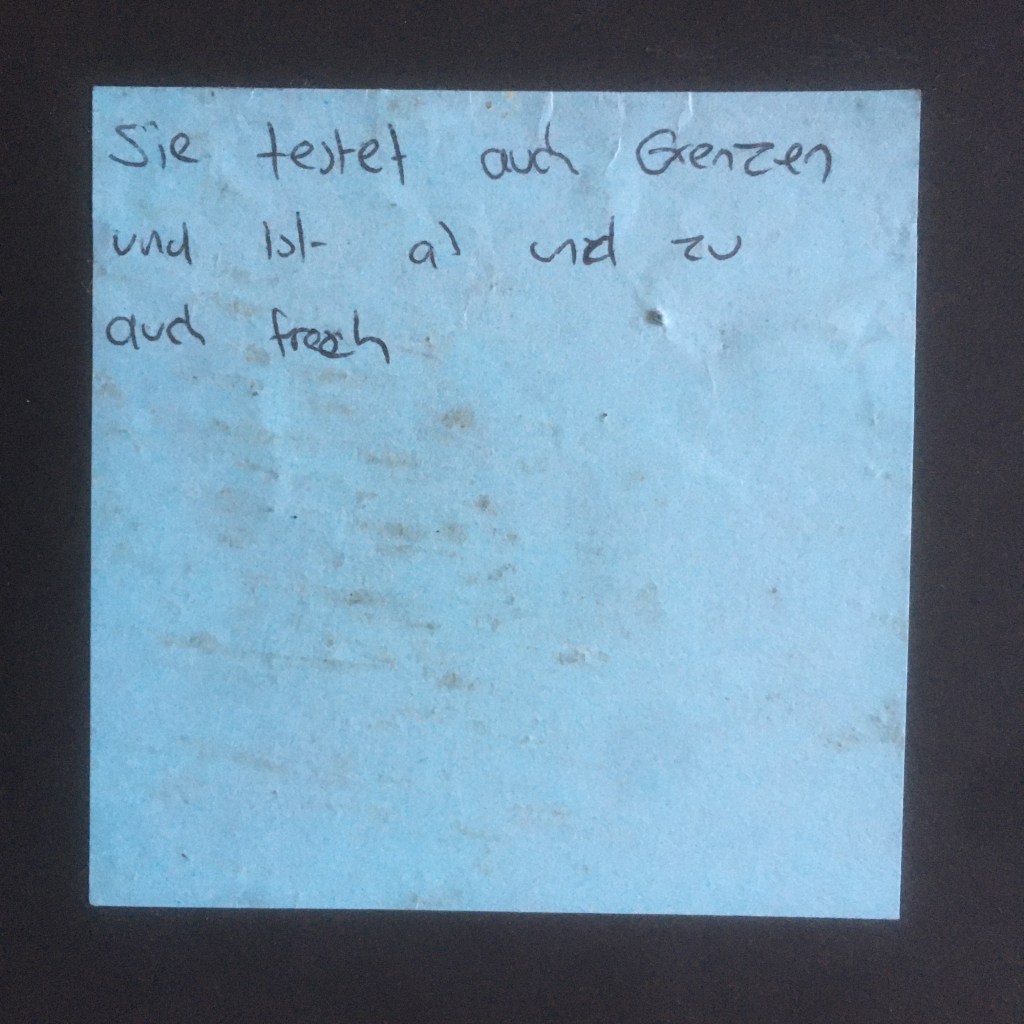 Sie testet auch Grenzen
und ist ab und zu
auch frech